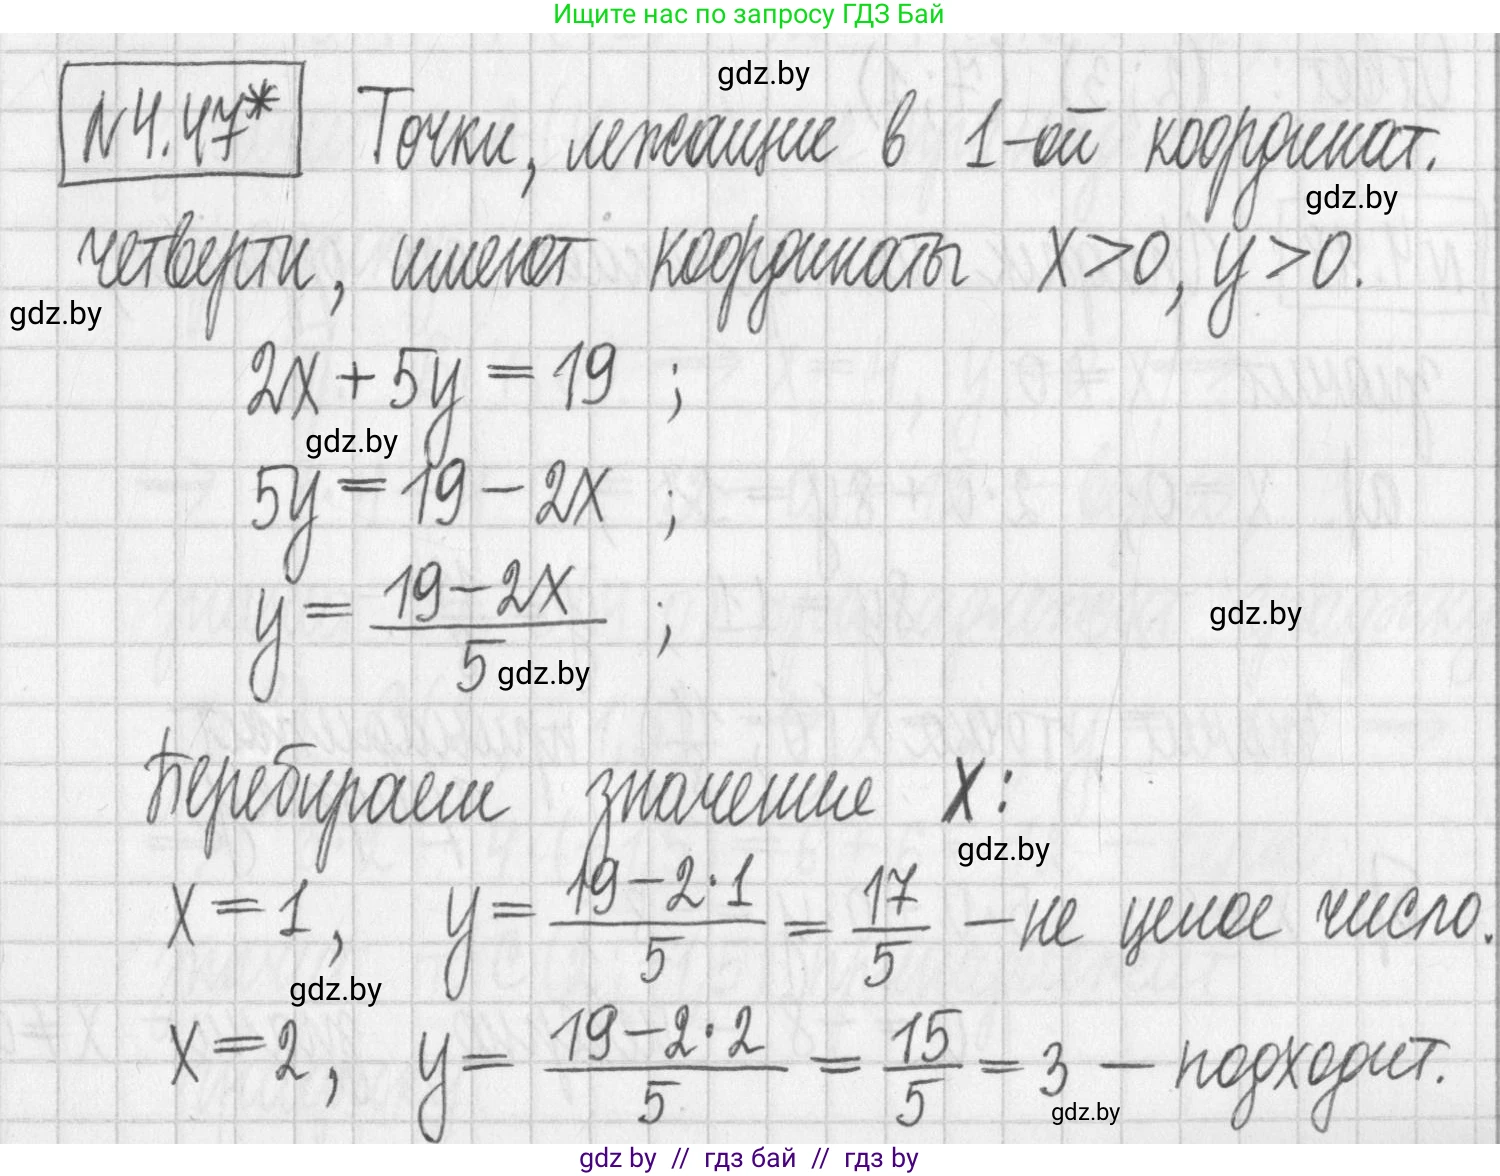 Ищите нас по запросу ГДЗ Бай
gdz.by
N4.47* Точки, лежащие в 1-ой координат.
gdz.by
четверти, имеют координаты x>0, y>0.
gdz.by
2x + 5y = 19 ;
gdz.by
5y = 19 - 2x ;
y = (19 - 2x)/5 ;
gdz.by
gdz.by
Перебираем значение x:
gdz.by
x = 1, y = (19 - 2·1)/5 = 17/5 - не целое число.
gdz.by
x = 2, y = (19 - 2·2)/5 = 15/5 = 3 - подходит.
gdz.by
gdz by // гдз бай // гдз by